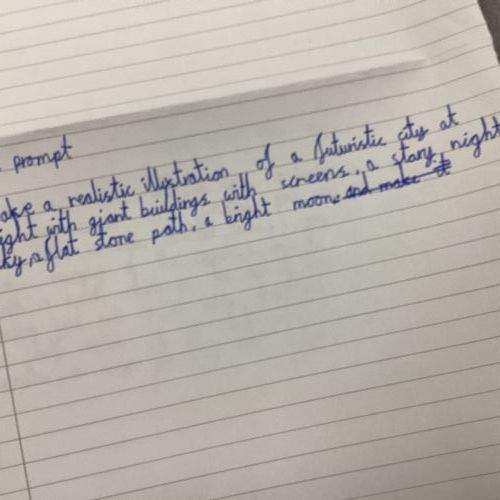 prompt
ake a realistic illustration of a futuristic city at
ight with giant buildings with screens, a stary night
ky, a flat stone path, a bright moon. and make it